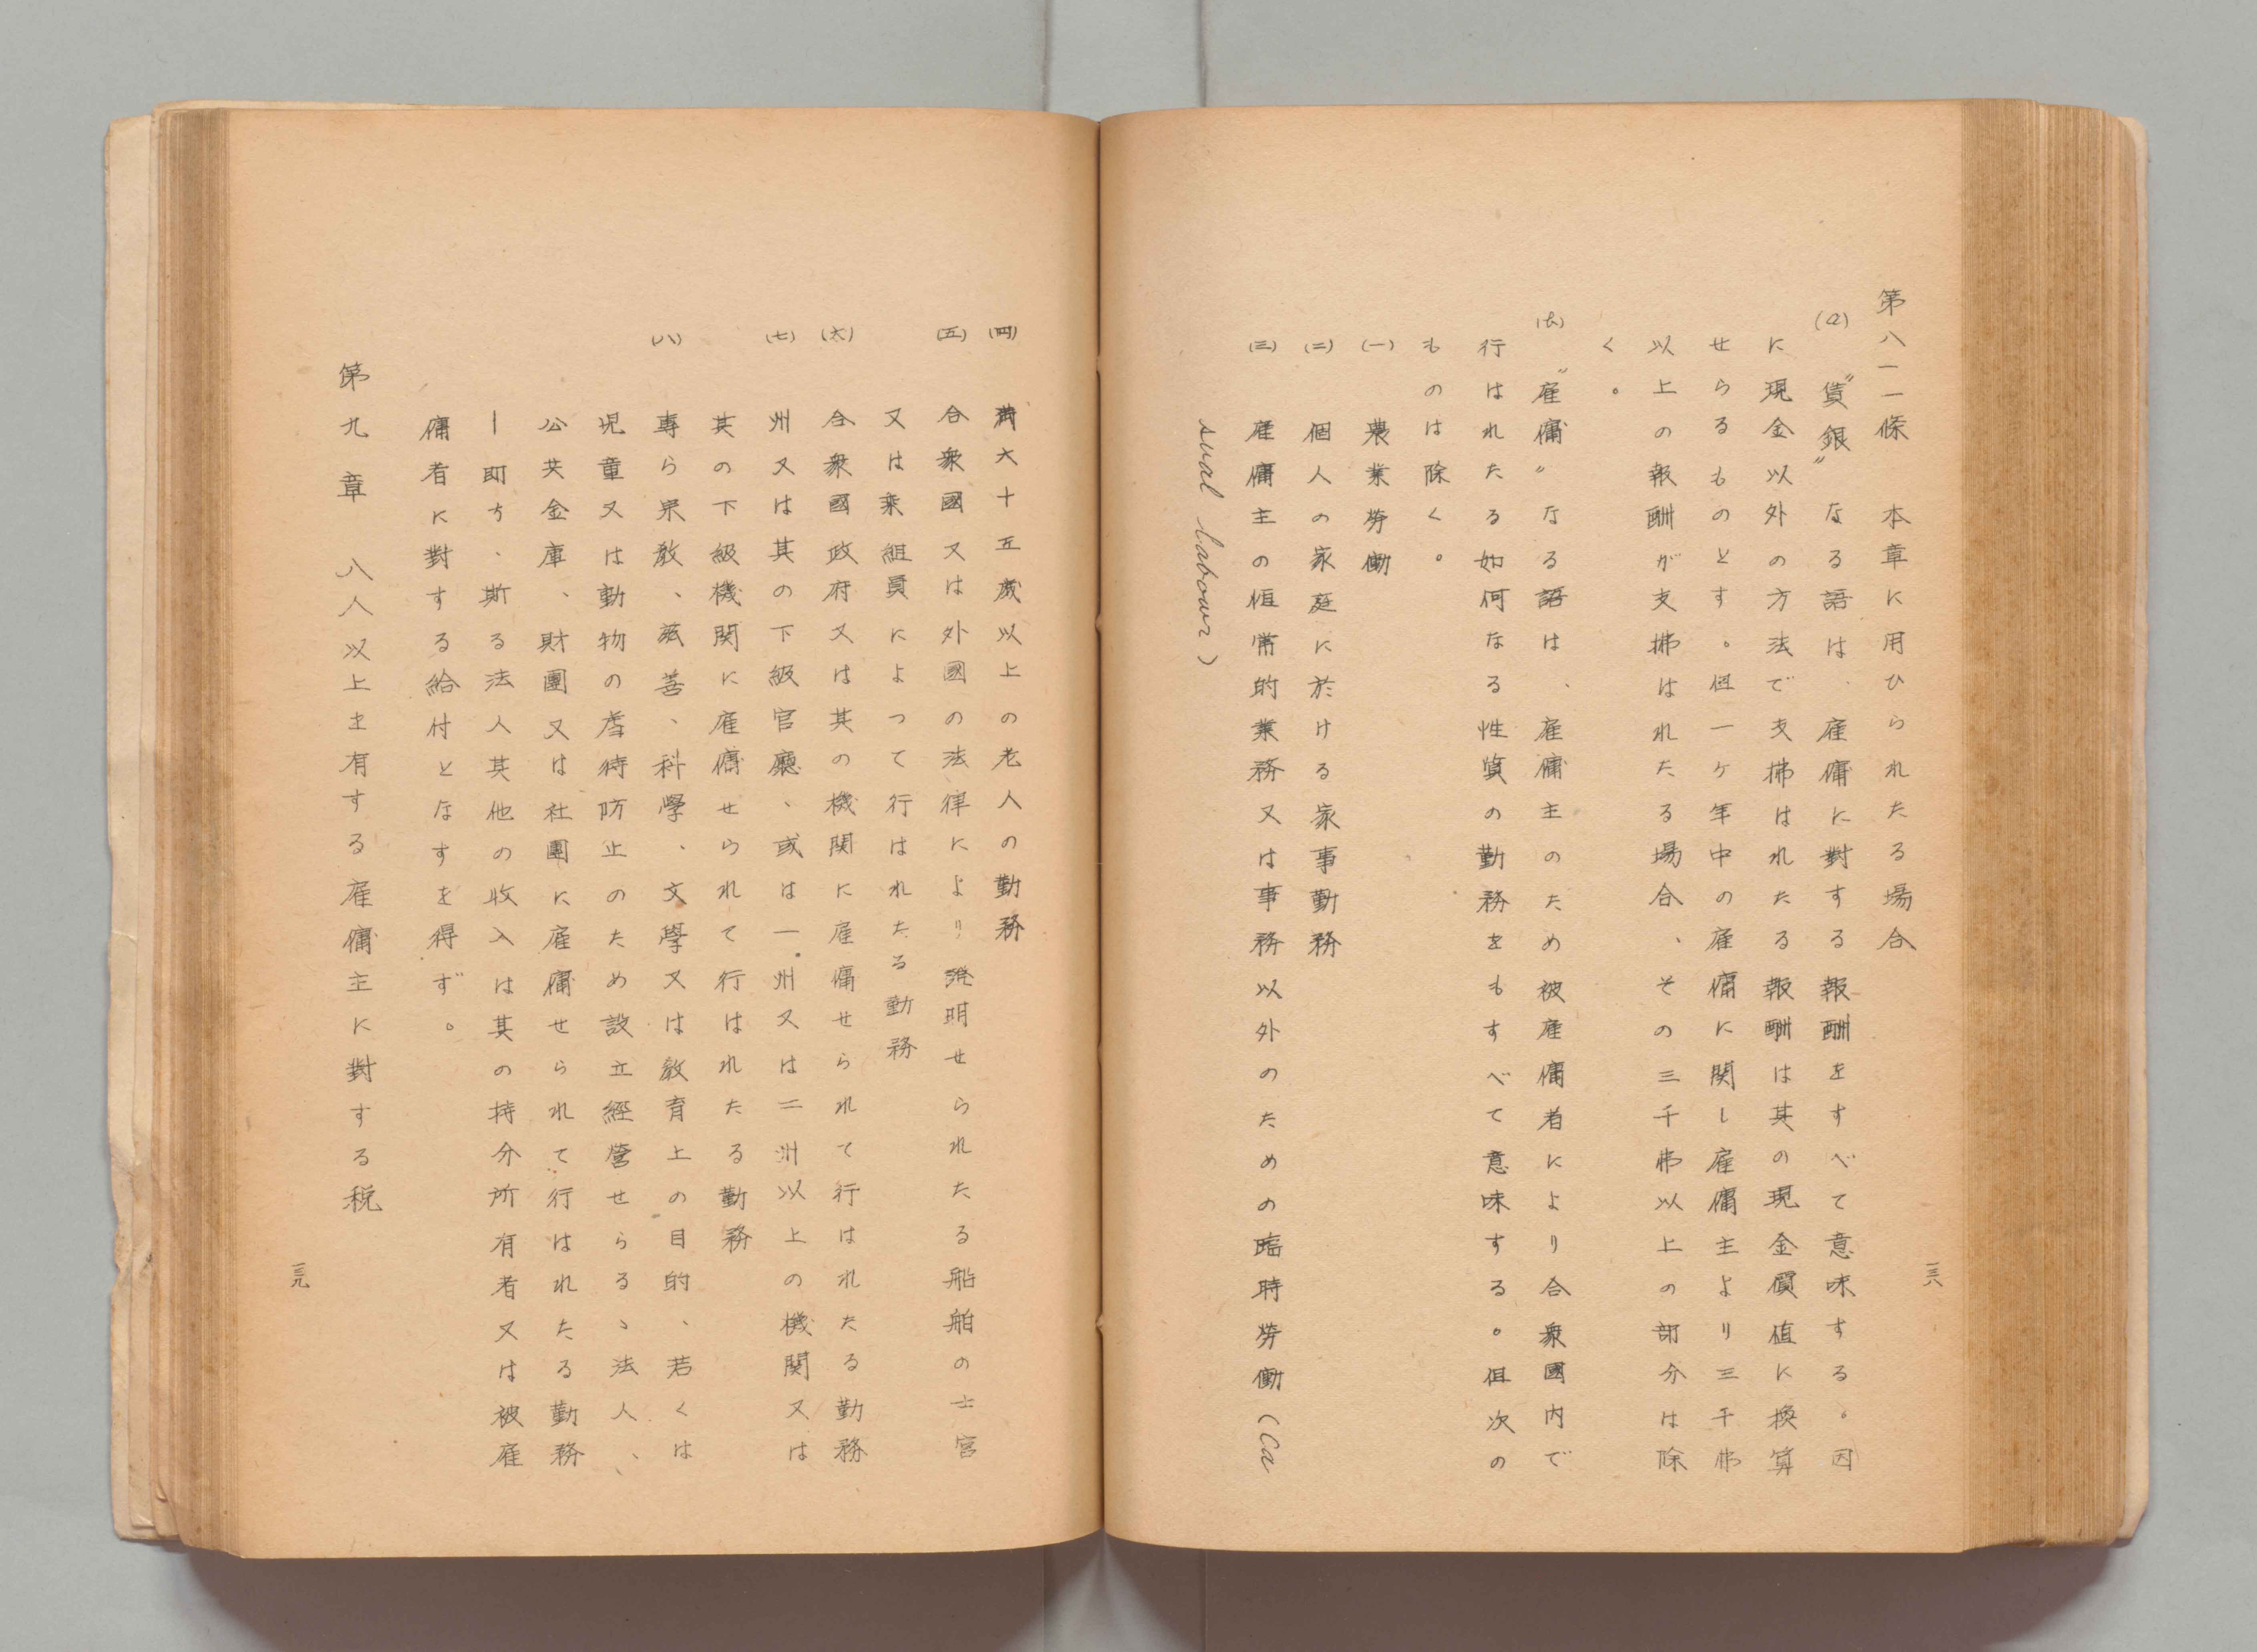 第八一一條　本章に用ひられたる場合
(a)　〝賃銀〟なる語は、雇傭に對する報酬をすべて意味する。因
に現金以外の方法で支拂はれたる報酬は其の現金價値に換算
せらるものとす。但一ヶ年中の雇傭に関し雇傭主より三千弗
以上の報酬が支拂はれたる場合、その三千弗以上の部分は除
く。
(b)　〝雇傭〟なる語は、雇傭主のため被雇傭者により合衆國内で
行はれたる如何なる性質の勤務をもすべて意味する。但次の
ものは除く。
(一)　農業労働
(二)　個人の家庭に於ける家事勤務
(三)　雇傭主の恒常的業務又は事務以外のための臨時労働(Ca
sual labour)
一三八
(四)　満六十五歳以上の老人の勤務
(五)　合衆國又は外國の法律により證明せられたる船舶の士官
又は乗組員によって行はれたる勤務
(六)　合衆國政府又は其の機関に雇傭せられて行はれたる勤務
(七)　州又は其の下級官廳、或は一州又は二州以上の機関又は
其の下級機関に雇傭せられて行はれたる勤務
(八)　專ら宗敎、慈善、科學、文學又は敎育上の目的、若くは
児童又は動物の虐待防止のため設立經営せらるゝ法人、、
公共金庫、財團又は社團に雇傭せられて行はれたる勤務
―即ち、斯る法人其他の收入は其の持分所有者又は被雇
傭者に對する給付となすを得ず。
第九章　八人以上を有する雇傭主に對する税
一三九